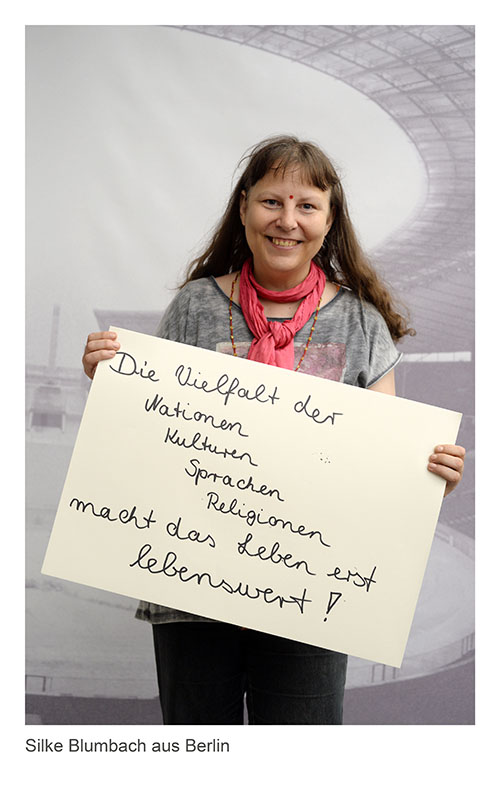 Die Vielfalt der
Nationen
Kulturen
Sprachen
Religionen
macht das Leben erst
lebenswert!
Silke Blumbach aus Berlin